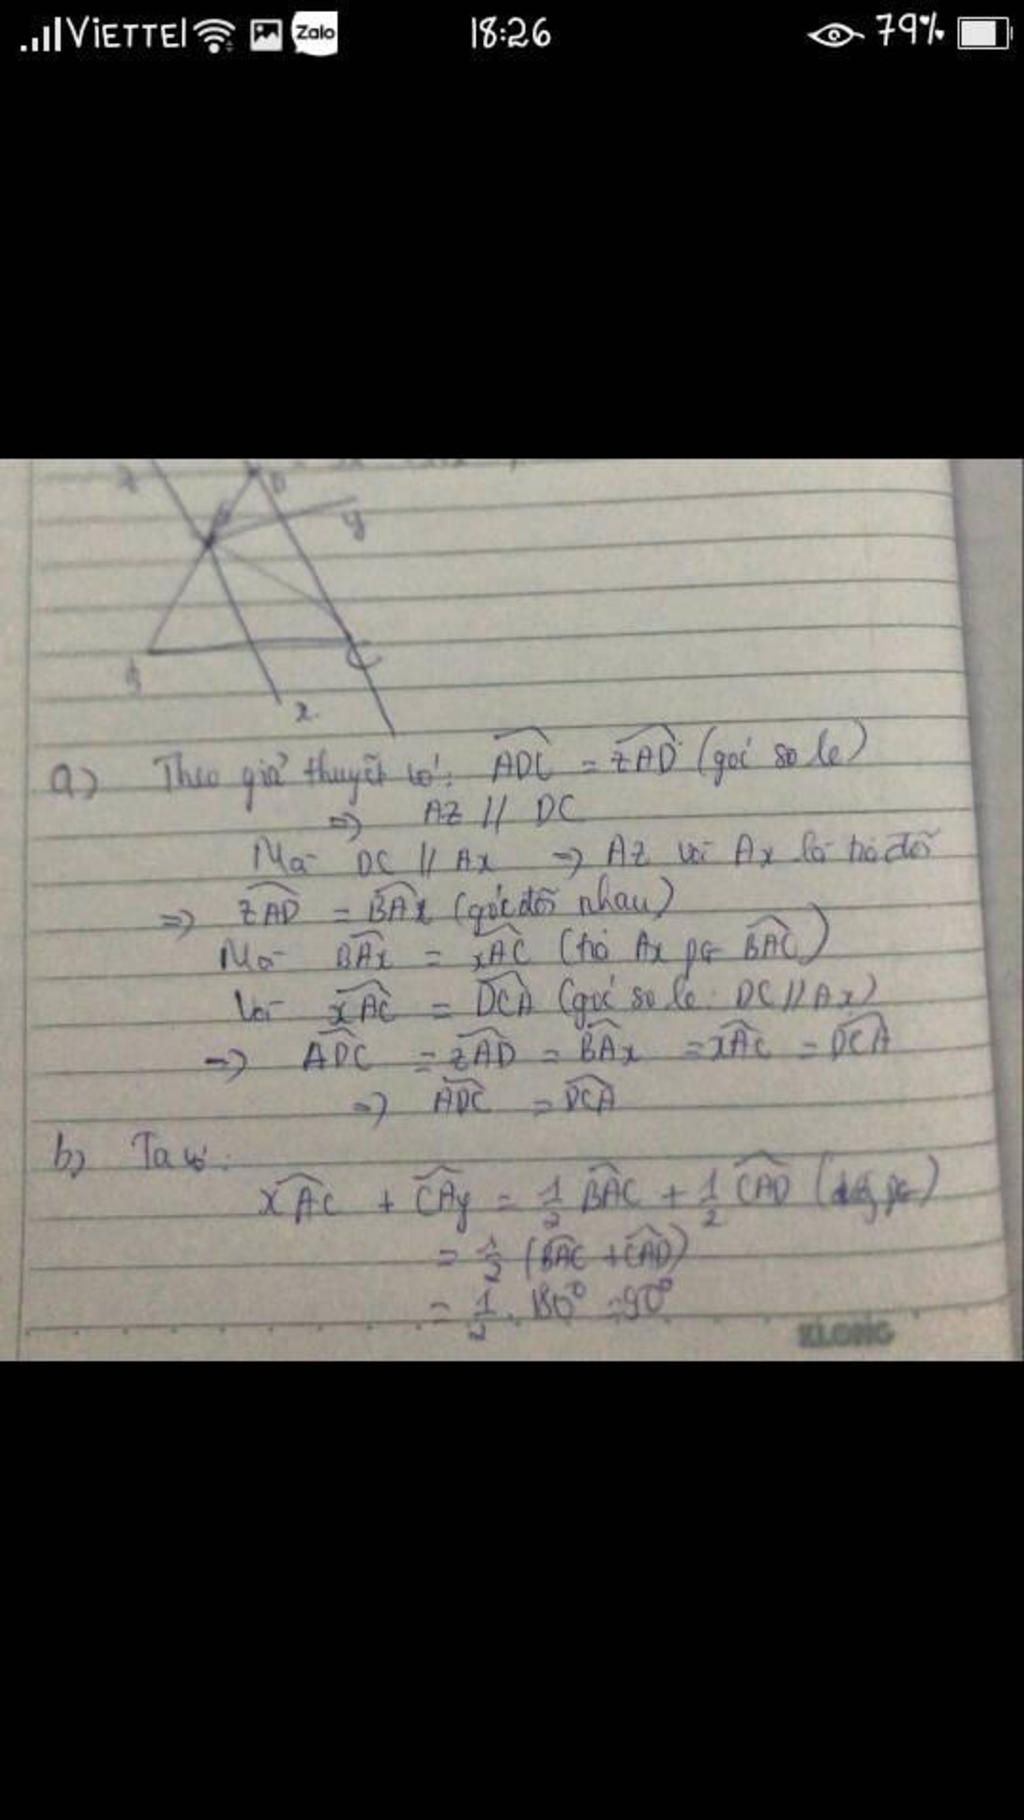 VIETTEL Zalo 18:26 79%
D
y
C
z
a) Theo giả thuyết có: ADC = zAD (góc so le)
=> AZ // DC
Mà DC // Ax => AZ với Ax là tia đối
=> ZAD = BAx (góc đối nhau)
Mà BAx = xAC (tia Ax pg BAC)
Với xAC = DCA (góc so le DC // Ax)
=> ADC = zAD = BAx = xAC = DCA
=> ADC = DCA
b) Ta có:
xAC + CAy = 1/2 BAC + 1/2 CAD
= 1/2 (BAC + CAD)
= 1/2 . 180° = 90°
KLONG